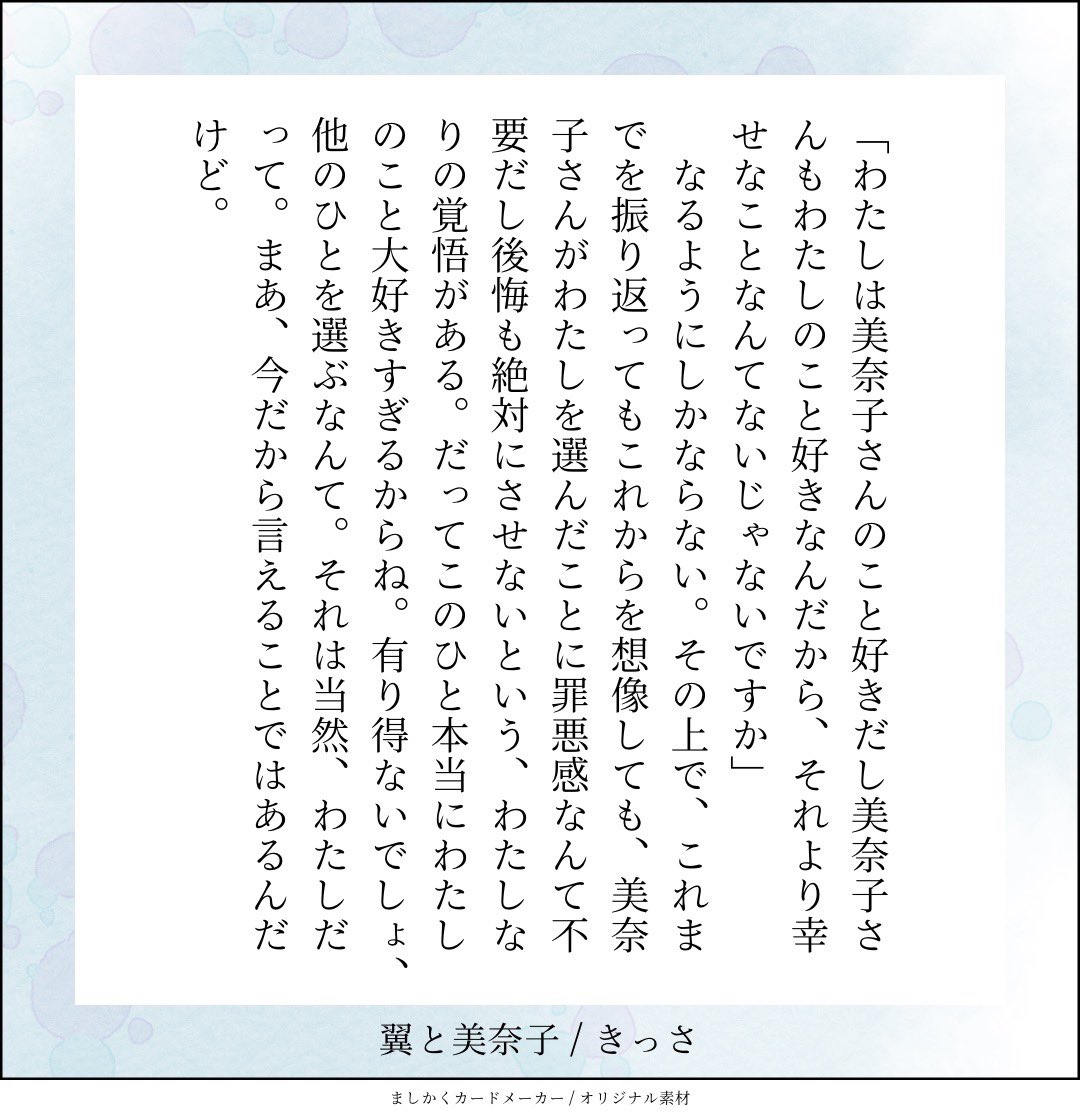 「わたしは美奈子さんのこと好きだし美奈子さ
んもわたしのこと好きなんだから、それより幸
せなことなんてないじゃないですか」
　なるようにしかならない。その上で、これま
でを振り返ってもこれからを想像しても、美奈
子さんがわたしを選んだことに罪悪感なんて不
要だし後悔も絶対にさせないという、わたしな
りの覚悟がある。だってこのひと本当にわたし
のこと大好きすぎるからね。有り得ないでしょ、
他のひとを選ぶなんて。それは当然、わたしだ
って。まあ、今だから言えることではあるんだ
けど。
翼と美奈子 / きっさ
ましかくカードメーカー / オリジナル素材